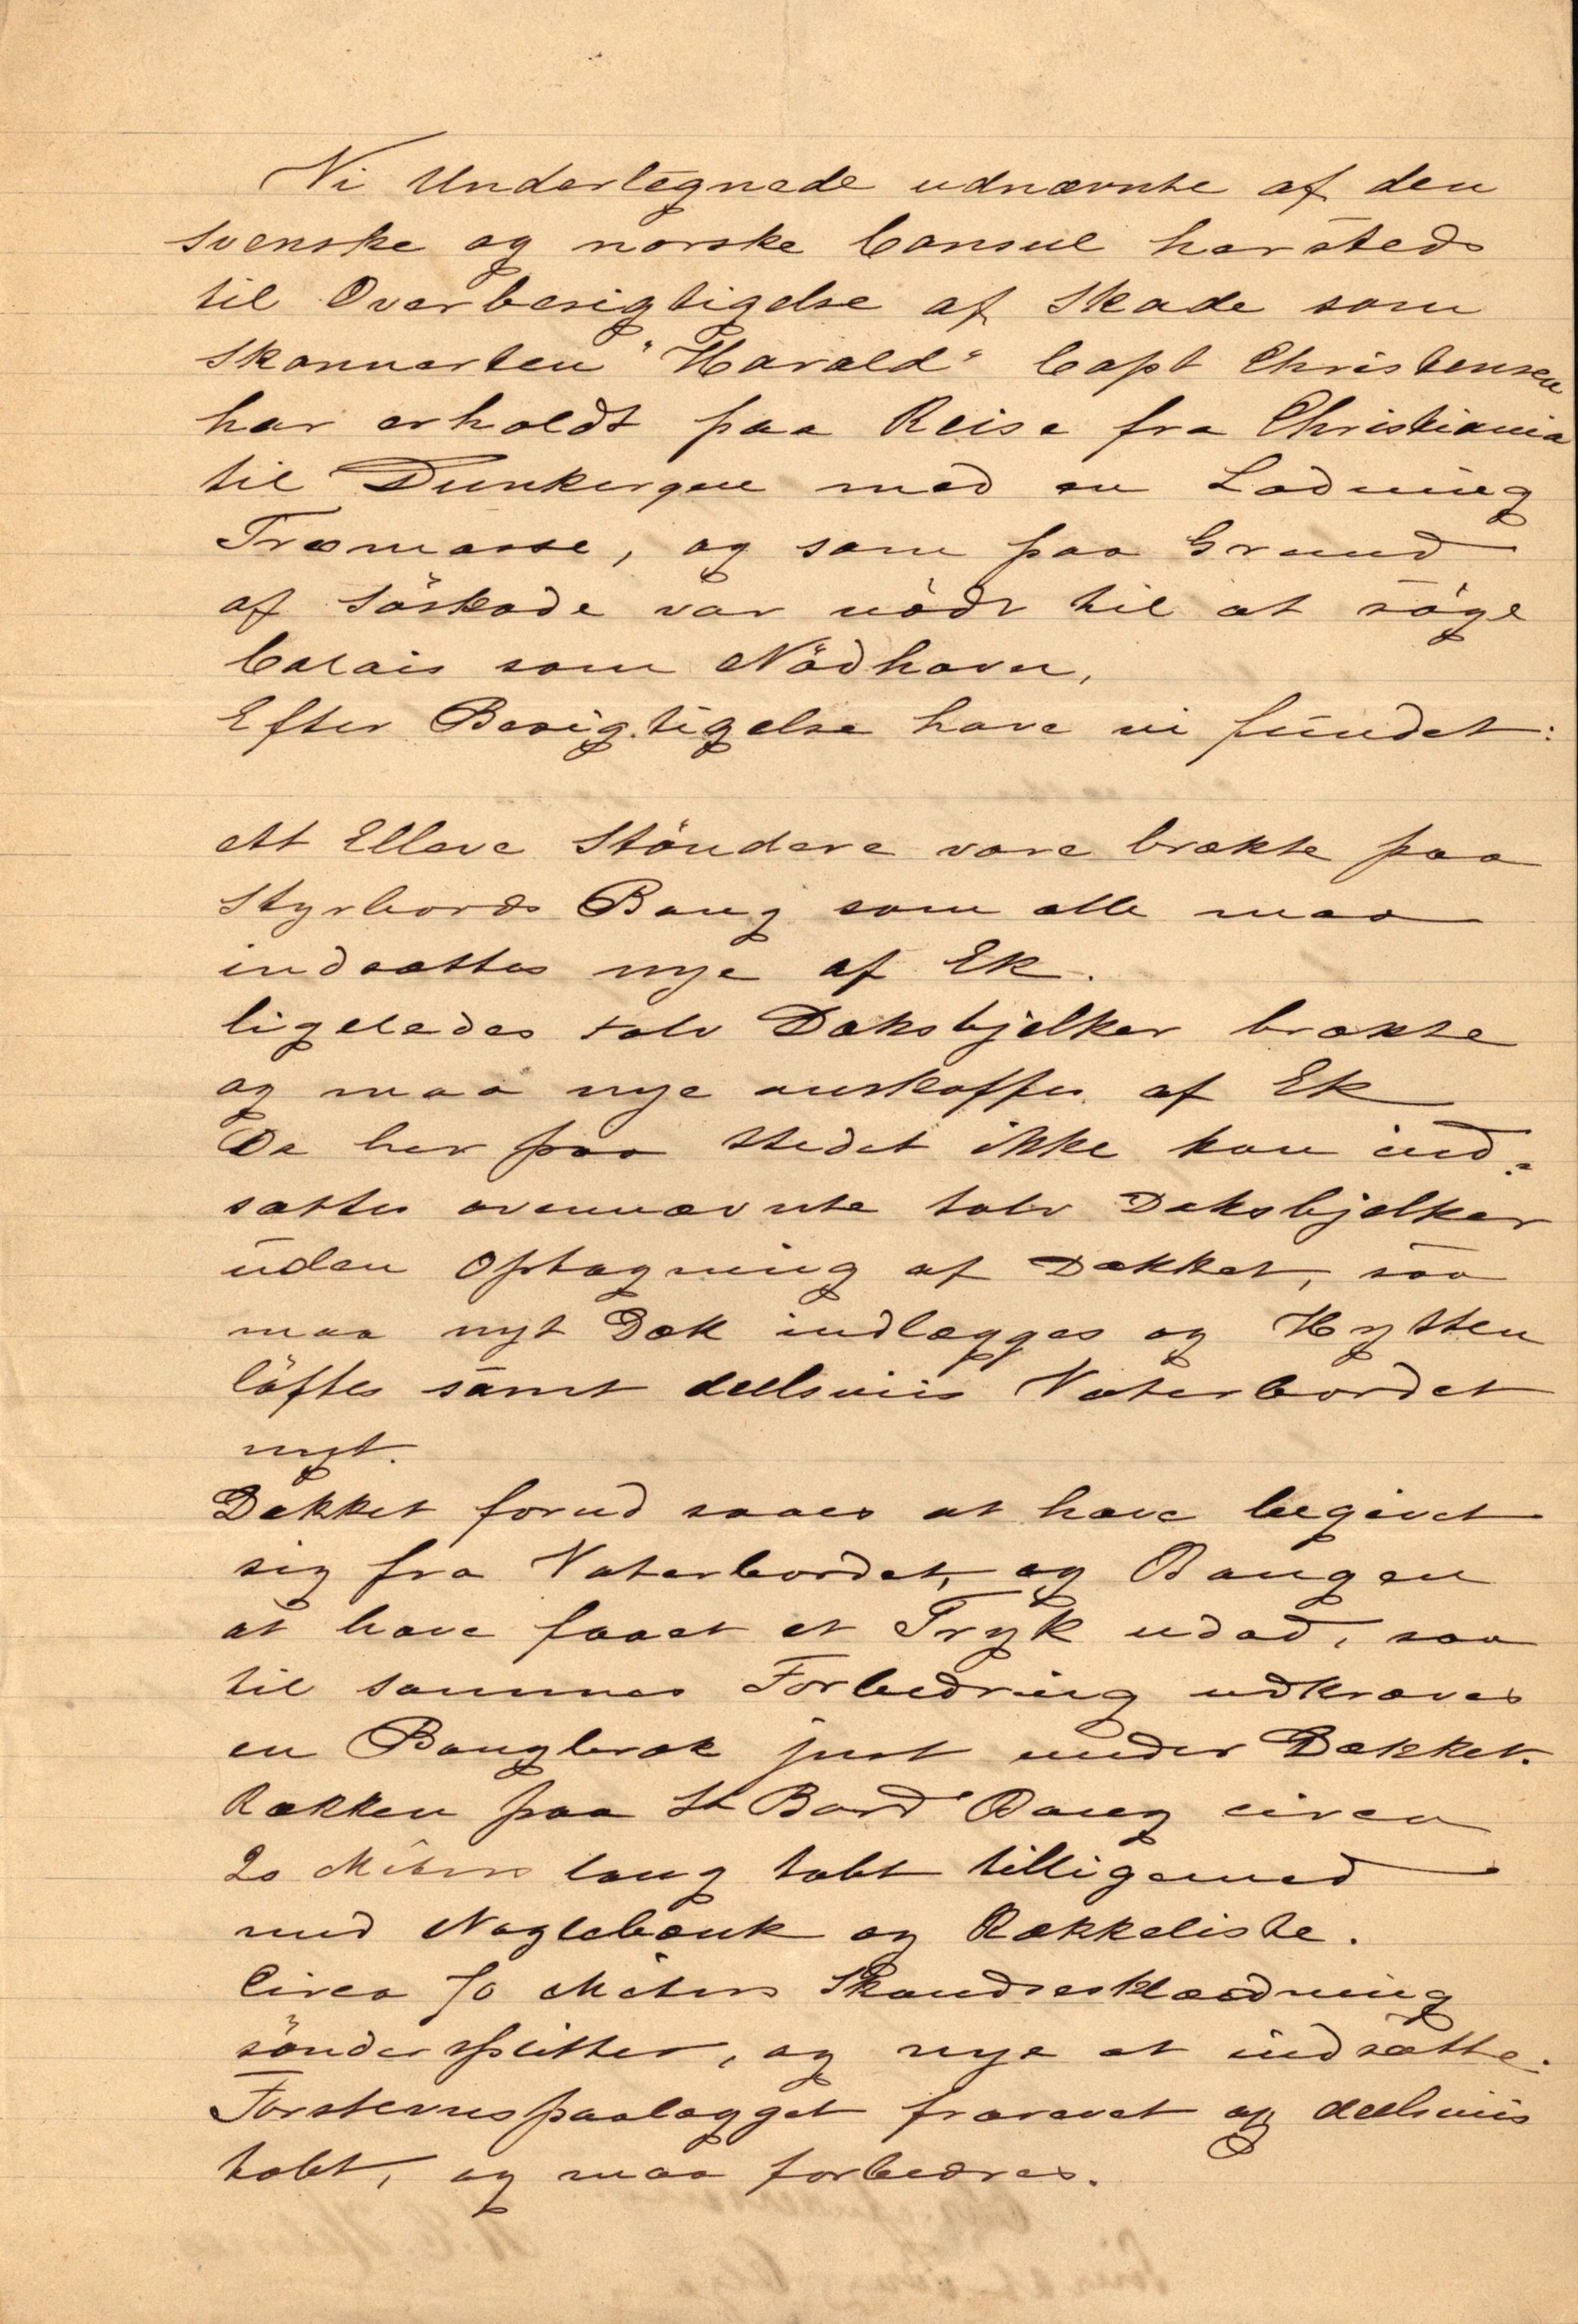 Vi Undertegnede udnævnte af den
svenske og norske Consul hersteds
til Overbesigtigelse af Skade som
Skonnerten "Harald" Capt Christensen
har erholdt paa Reise fra Christiania
til Dunkerque med en Ladning
Træmasse, og som paa Grund
af Söskade var nödt til at söge
Calais som Nödhavn,
Efter Besigtigelse have vi fundet:
At Elleve Stöndere vare brækte paa
Styrbords Baug som alle maa
indsættes nye af Ek.
ligeledes tolv Dæksbjelker brækte
og maa nye anskaffes af Ek
Da her paa Stedet ikke kan ind-
sættes ovennævnte tolv Deksbjelker
uden Optagning af Dækket, saa
maa nyt Dæk indlægges og Hytten
löftes samt deelsviis Vaterbordet
nyt.
Dækket forud saaes at have begivet
sig fra Vaterbordet, og Baugen
at have faaet et Tryk udad, saa
til sammes Forbedring udkræves
en Baugbræk just under Dækket.
Rækken paa St Bord Baug circa
20 Meters lang tabt tilligemed
med Naglebænk og Rækkeliste.
Circa 70 Meters Skandseklædning
sönder splitter, og nye at indsætte.
Forstevnspaalægget frarevet og deelsviis
tabt, og maa forbedres.